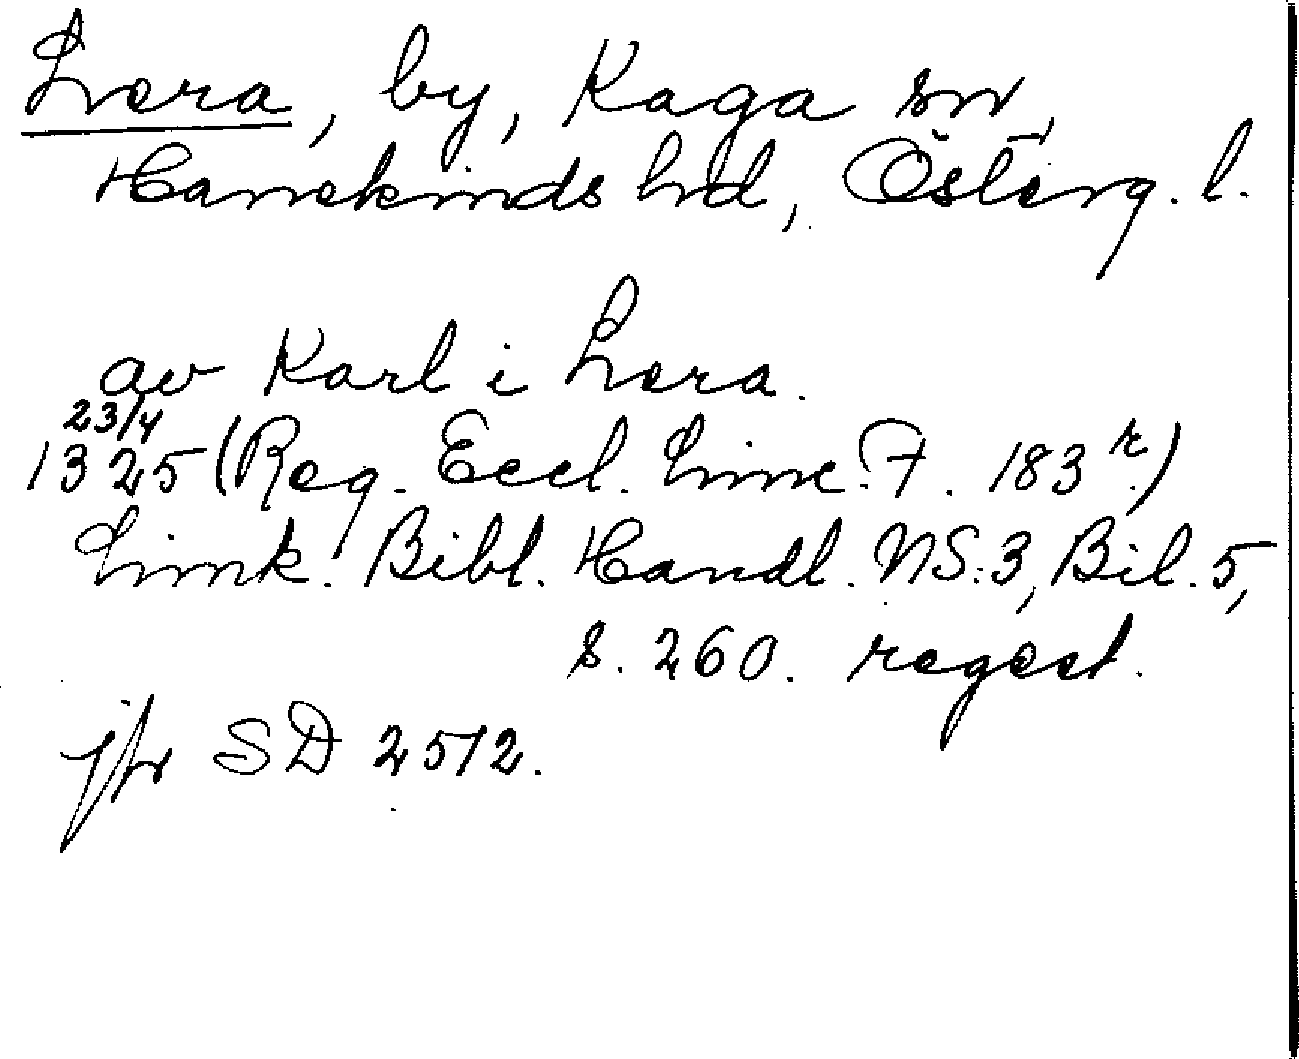 Lora, by, Kaga sn,
Hanekinds hd, Österg. l.
av Karl i Lora.
23/4
1325 (Reg. Eccl. Linc. F. 183 r.)
Link. Bibl. Handl. NS:3, Bil. 5,
s. 260. regest.
jfr SD 2512.